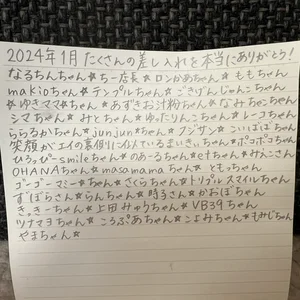 2024年1月たくさんの差し入れを本当にありがとう!
なるちんちゃん★ちー店長★ロンかあちゃん★ももちゃん
makioちゃん★テンプルちゃん★ごきげんじゅんこちゃん
★ゆきママ★ちゃん★あずきお汁粉ちゃん★なみこちゃん
シマちゃん★みとちゃん★ゆったりんこちゃん★レーコちゃん
ららるかちゃん★junjun★ちゃん★フジサン★こいぽぽちゃん
笑顔がエイの裏側に似ているまいきぃちゃん★ポコポコちゃん
ひらっぴーsmileちゃん★のあーるちゃん★etちゃん★けんこさん
OHANAちゃん★masamamaちゃん★ともっちゃん
ゴーゴーマミー★ちゃん★さくらちゃん★トリプルスマイルちゃん
ずぼらさん★らんちゃん★時子さん★かおぽちゃん
きっきーちゃん★上田みゅりちゃん★VB39ちゃん
ツナマヨちゃん★ころぷあちゃん★こよみちゃん★もみじちゃん
やまちゃん★